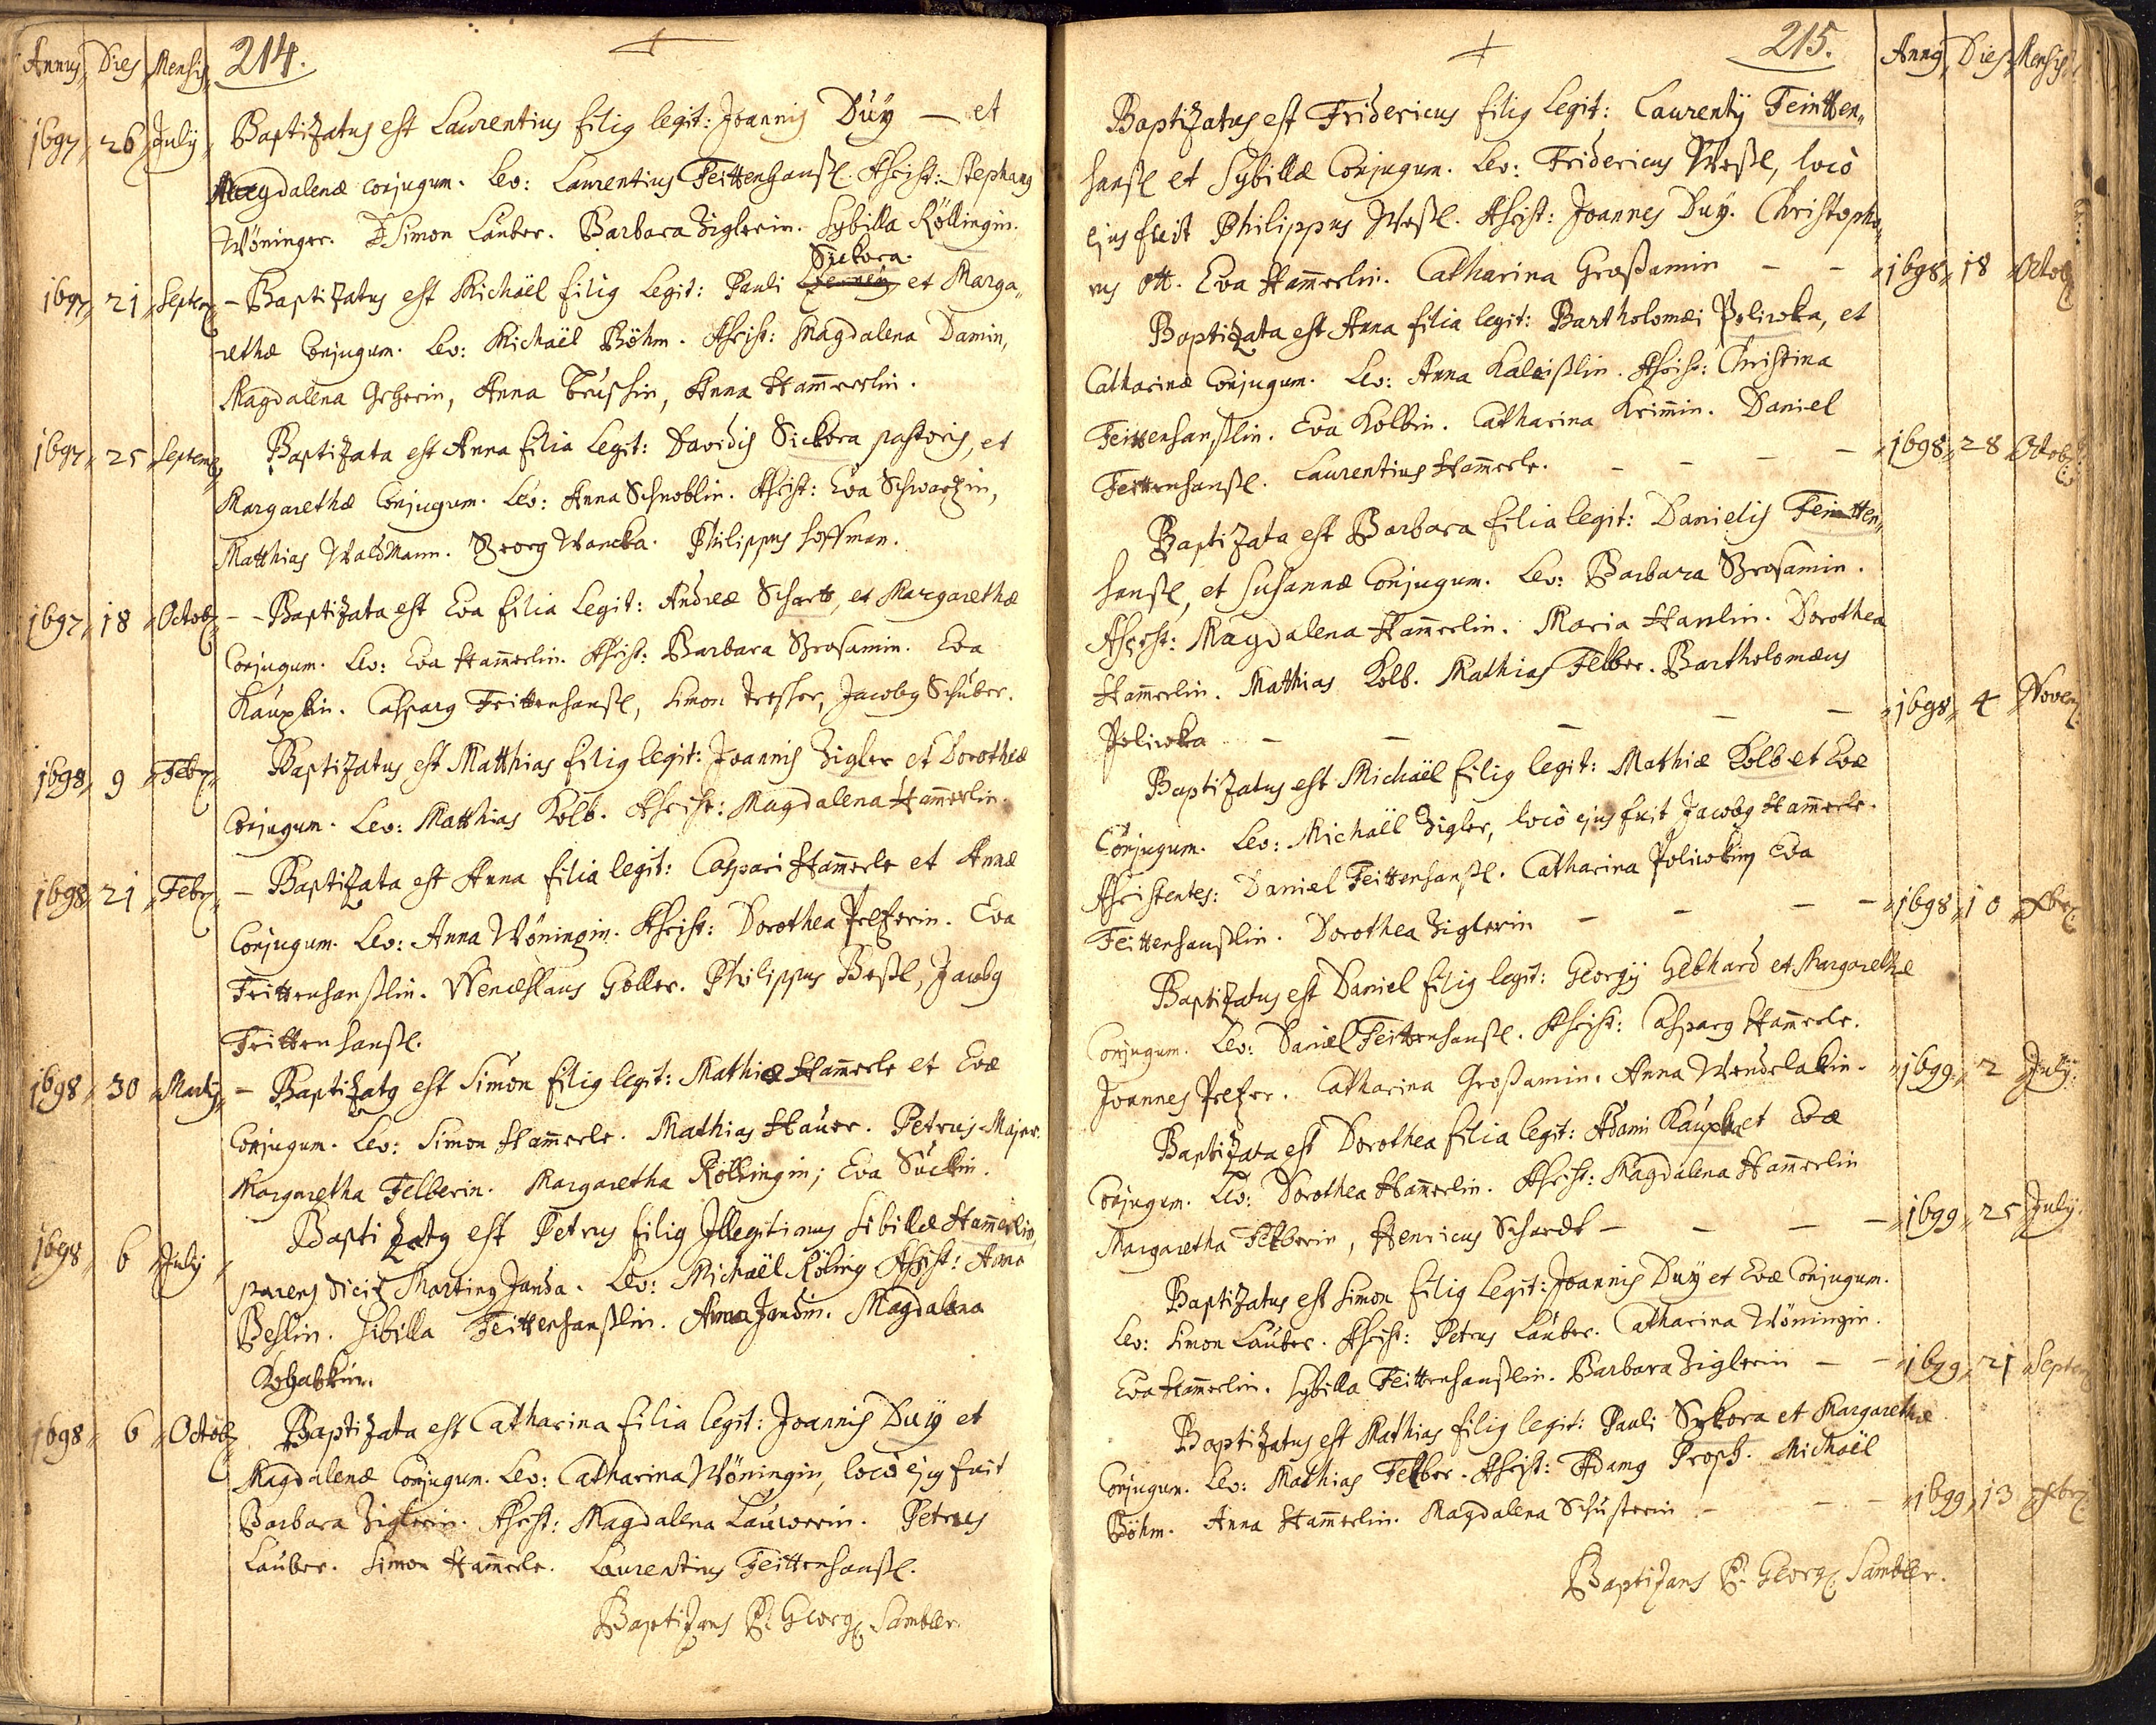 Annus Dies Mensis 214.
1697 26 July Baptizatus est Laurentius filig legit: Joannis Duÿ — et
Magdalenæ conjugum. Lev: Laurentius Feittenhansl. Assist: Stephang
Wöninger. Simon Lauber. Barbara Ziglerin. Sybilla Röllingin.
Sickora.
1697 21 Septem – Baptizatus est Michaël filig legit: Pauli et Marga„
rethæ Conjugum. Lev: Michaël Böhm. Assist: Magdalena Damin,
Magdalena Anna Anna Hamerlin.
1697 25 Septemb Baptizata est Anna filia legit: Davidis Sickora pastoris, et
Margarethæ Conjugum. Lev: Anna Schnoblin. Assist: Eva Schwartzin,
Matthias Waldmann. Georg Wancka. Philippus Hoffman.
1697 18 Octob – - Baptizata est Eva filia legit: Andreæ Schartt, et Margarethæ
Conjugum. Lev: Eva Hamerlin. Assist: Barbara Grosamin. Eva
Kauplin. Casparg Feittenhansl, Simon Jacobg Schuber.
1698 9 Febr Baptizatus est Matthias filig legit: Joannis Zigler et Dorotheæ
Conjugum. Lev: Matthias Kolb. Assist: Magdalena Hamerlin.
1698 21 Febr – Baptizata est Anna filia legit: Caspari Hamerle et Annæ
Conjugum. Lev: Anna Wöningin. Assist: Dorothea Prefserin. Eva
Feittenhanslin. Wenceslaus Goller. Philippus Beßl, Jacobg
Feittenhansl.
1698 30 Martij – Baptizatg est Simon filig legit: Mathiæ Hamerle et Evæ
Conjugum. Lev: Simon Hamerle. Mathias Hauer. Petrus Majer.
Margaretha Felberin. Margaretha Röllingin; Eva Suckin.
1698 6 July Baptizatg est Petrus filig Illegitimus Sibillæ Hamerlin,
parens dicit Marting Janda. Lev: Michaël Röling Assist: Anna
Beslin. Sibilla Feittenhanslin. Anna Jandin. Magdalena
1698 6 Octob Baptizata est Catharina filia legit: Joannis Duÿ et
Magdalenæ Conjugum. Lev: Catharina Wöningin, locò ejg fuit
Barbara Ziglerin. Assist: Magdalena Lauwerin. Petrus
Lauber. Simon Hamerle. Laurentius Feittenhansl.
Baptizans P. Georg Sambler.
215. Anng Dies Mensis
Baptizatus est Fridericus filig legit: Laurentÿ Feittten„
hansl et Sybillæ Conjugum. Lev: Fridericus Weßl, locò
ejus fuit Philippus Weßl. Assist: Joannes Duÿ. Christopho„
rus Ott. Eva Hamerlin. Catharina Großamin – – 1698 18 Octob
Baptizata est Anna filia legit: Bartholomæi Poliwka, et
Catharinæ Conjugum. Lev: Anna Kaleißlin. Assist: Christina
Feittenhanßlin. Eva Kolbin. Catharina Krimin. Daniel
Feittenhansl. Laurentius Hamerle. – – – – 1698 28 Octob
Baptizata est Barbara filia legit: Danielis Feitten„
hansl, et Susannæ Conjugum. Lev: Barbara Grosamin.
Assist: Magdalena Hamerlin. Maria Hanlin. Dorothea
Hamerlin. Mathias Kolb. Mathias Felber. Bartholomæus
Poliwka – – – – – 1698 4 Novem
Baptizatus est Michaël filig legit: Mathiæ Kolb et Evæ
Conjugum. Lev: Michaël Zigler, locò ejus fuit Jacobg Hamerle.
Assistentes: Daniel Feittenhanßl. Catharina Poliwkin, Eva
Feittenhanßlin. Dorothea Ziglerin – – – – 1698 10 Xbr
Baptizatus est Daniel filig legit: Georgÿ Gebhard et Margarethæ
Conjugum. Lev: Daniel Feittenhansl. Assist: Casparg Hamerle.
Joannes Prefser. Catharina Großamin. Anna Wendelakin. 1699 2 July
Baptizata est Dorothea filia legit: Adami Kaupl et Evæ
Conjugum. Lev: Dorothea Hamerlin. Assist: Magdalena Hamerlin
Margaretha Felberin, Henricus Schardt – – – – 1699 25 July.
Baptizatus est Simon filig legit: Joannis Duÿ et Evæ Conjugum.
Lev: Simon Lauber. Assist: Petrus Lauber. Catharina Wöningin.
Eva Hamerlin. Sybilla Feittenhanßlin. Barbara Ziglerin – – 1699 21 Septem
Baptizatus est Mathias filig legit: Pauli Sykora et Margarethæ
Conjugum. Lev: Mathias Felber. Assist: Adamg Prosch. Michaël
Böhm. Anna Hamerlin. Magdalena Schusterin – – – 1699 13 Xbr
Baptizans P. Georg Sambler.